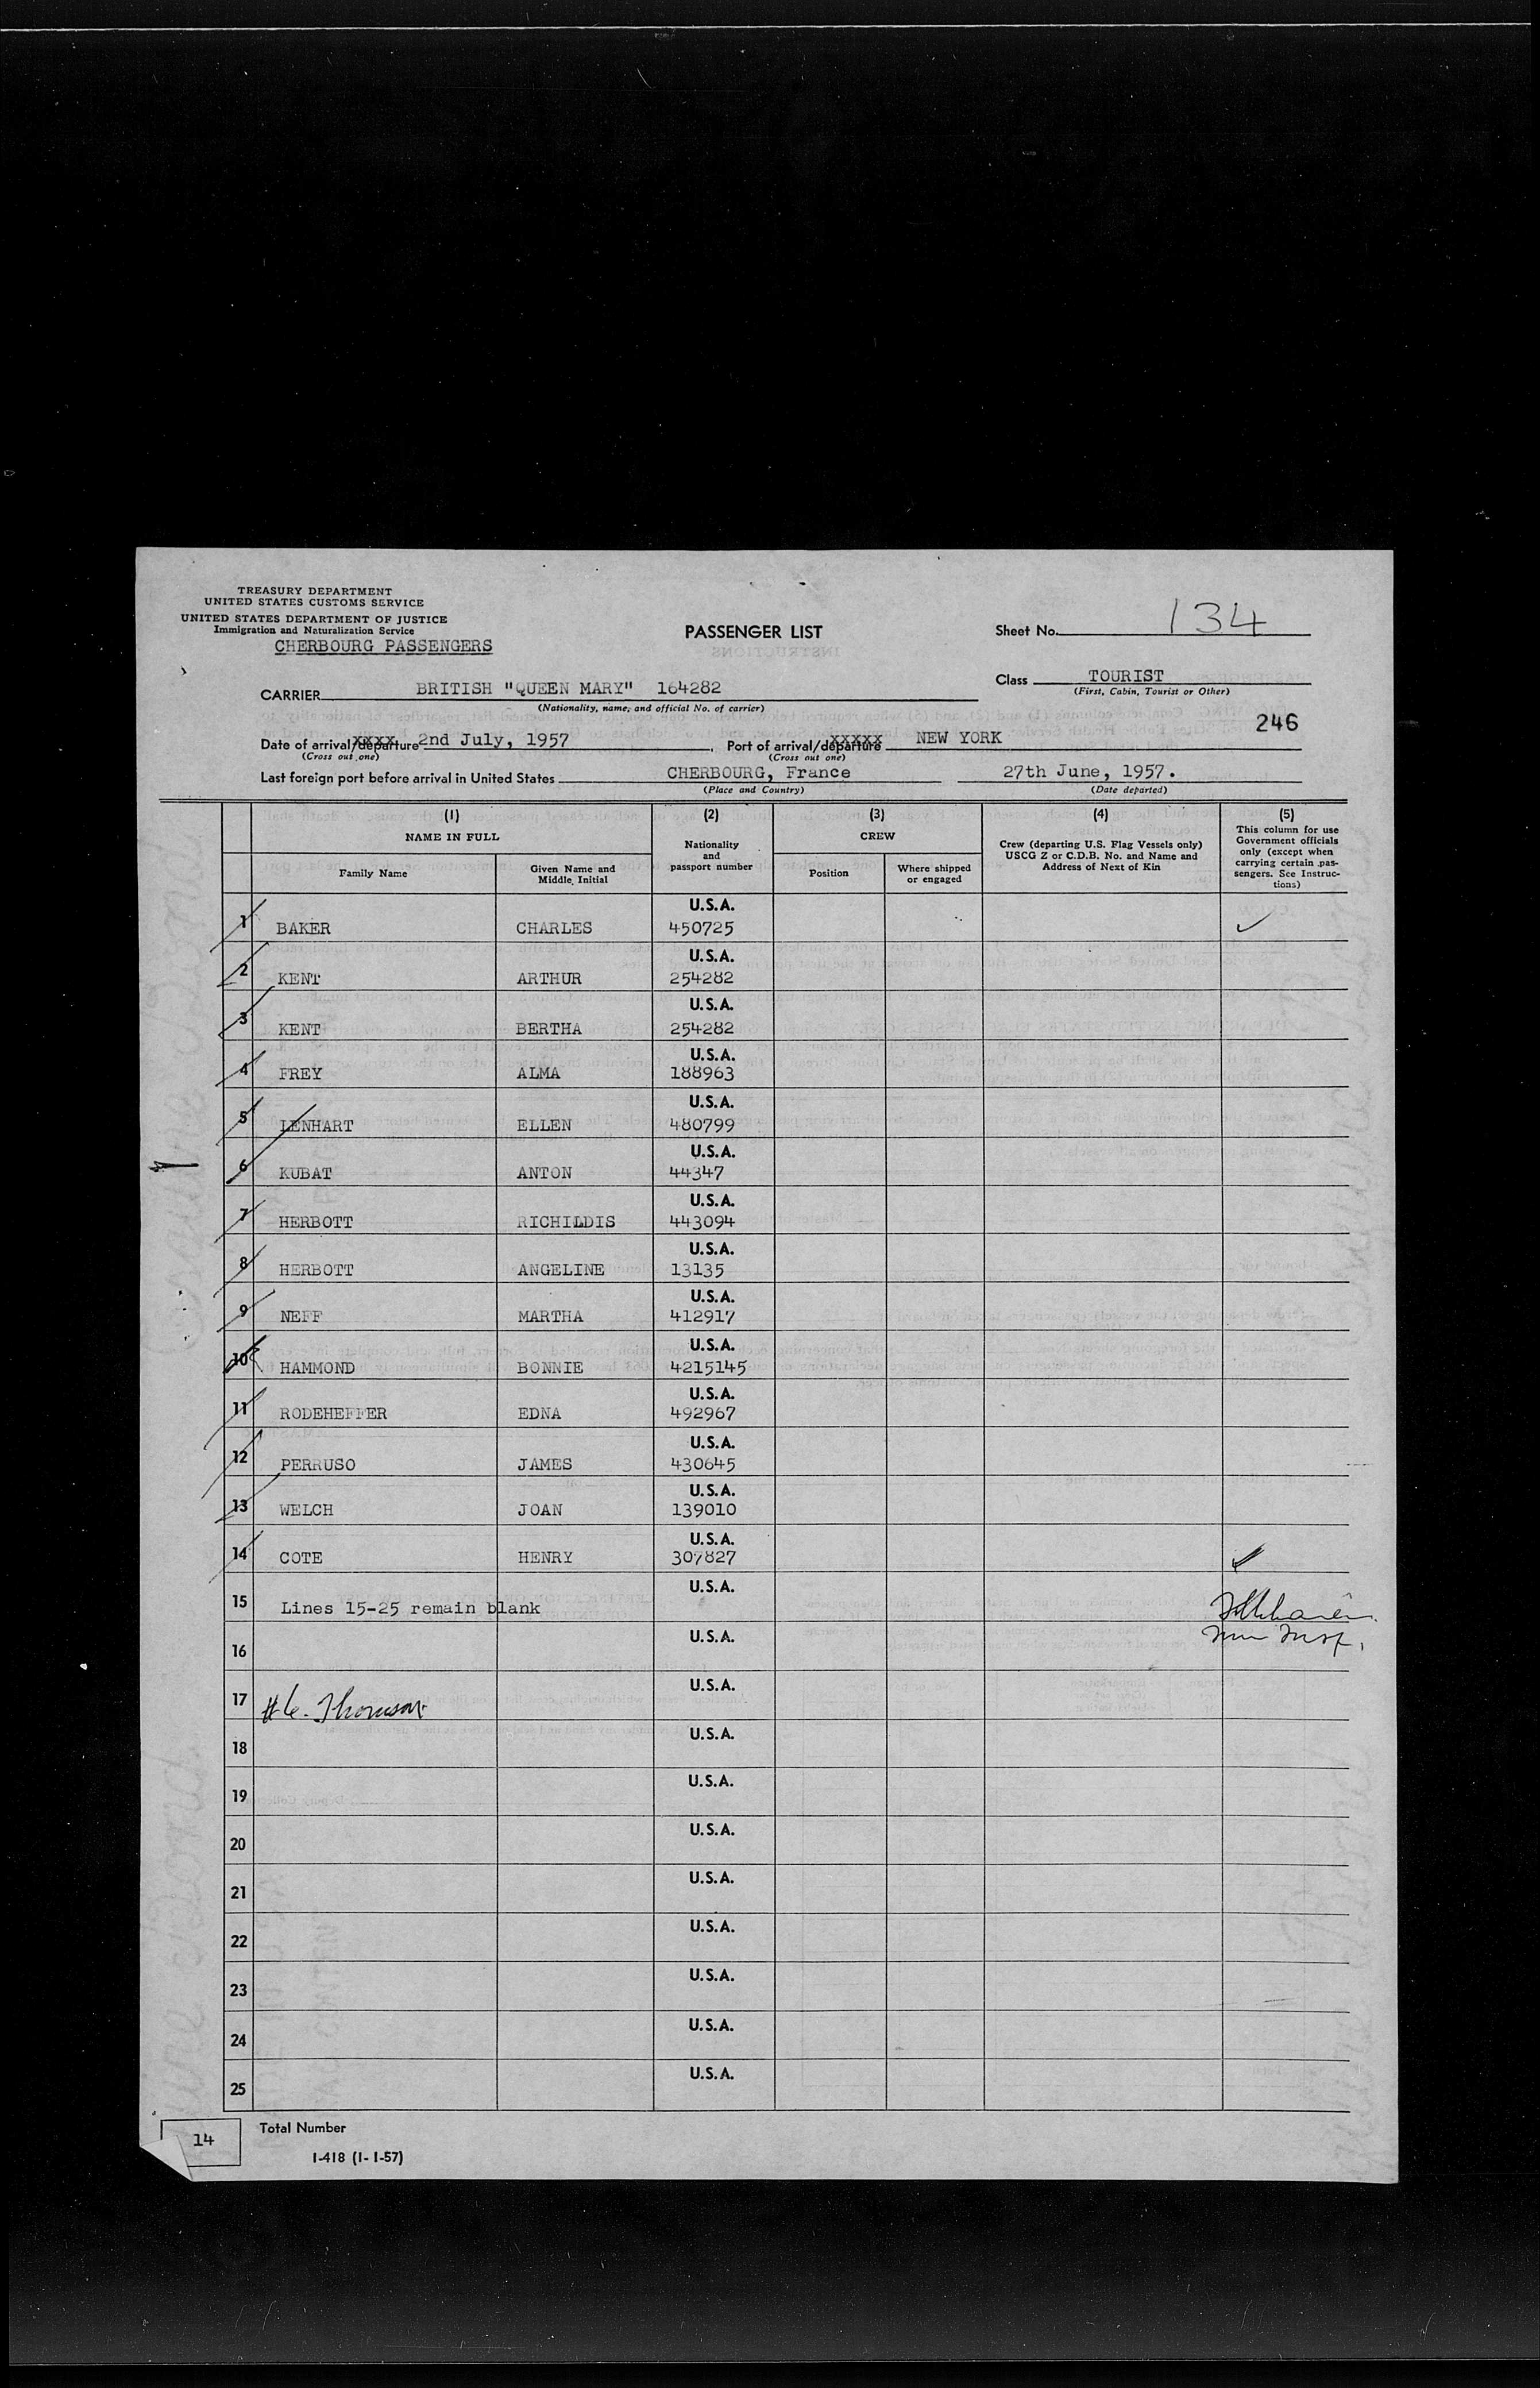 TREASURY DEPARTMENT
UNITED STATES CUSTOMS SERVICE
UNITED STATES DEPARTMENT OF JUSTICE
Immigration and Naturalization Service
CHERBOURG PASSENGERS
PASSENGER LIST
Sheet No. 134
CARRIER BRITISH "QUEEN MARY" 164282
(Nationality, name, and official No. of carrier)
Class TOURIST
(First, Cabin, Tourist or Other)
246
Date of arrival/departure xxxx 2nd July, 1957
(Cross out one)
Port of arrival/departure xxxxx NEW YORK
(Cross out one)
Last foreign port before arrival in United States CHERBOURG, France 27th June, 1957.
(Place and Country) (Date departed)
(1) (2) (3) (4) (5)
NAME IN FULL
Family Name
Given Name and Middle Initial
Nationality and passport number
CREW
Position
Where shipped or engaged
Crew (departing U.S. Flag Vessels only)
USCG Z or C.D.B. No. and Name and
Address of Next of Kin
This column for use
Government officials
only (except when
carrying certain pas-
sengers. See Instruc-
tions)
1 BAKER CHARLES U.S.A. 450725
2 KENT ARTHUR U.S.A. 254282
3 KENT BERTHA U.S.A. 254282
4 FREY ALMA U.S.A. 188963
5 LENHART ELLEN U.S.A. 480799
6 KUBAT ANTON U.S.A. 44347
7 HERBOTT RICHILDIS U.S.A. 443094
8 HERBOTT ANGELINE U.S.A. 13135
9 NEFF MARTHA U.S.A. 412917
10 HAMMOND BONNIE U.S.A. 4215145
11 RODEHEFFER EDNA U.S.A. 492967
12 PERRUSO JAMES U.S.A. 430645
13 WELCH JOAN U.S.A. 139010
14 COTE HENRY U.S.A. 307827
15 Lines 15-25 remain blank U.S.A.
16 U.S.A.
17 Thomson U.S.A.
18 U.S.A.
19 U.S.A.
20 U.S.A.
21 U.S.A.
22 U.S.A.
23 U.S.A.
24 U.S.A.
25 U.S.A.
14 Total Number
I-418 (1-1-57)